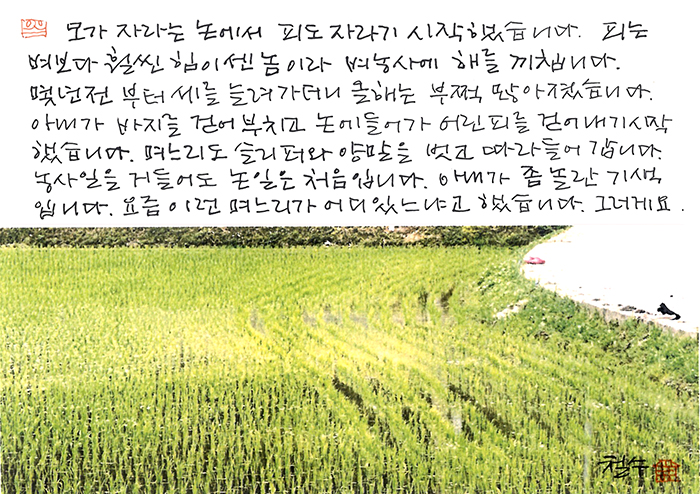 모가 자라는 논에서 피도 자라기 시작했습니다. 피는
벼보다 훨씬 힘이센 놈이라 벼농사에 해를 끼칩니다.
몇년전 부터 세를 늘려가더니 올해는 부쩍 많아졌습니다.
아내가 바지를 걷어부치고 논에들어가 어린피를 걷어내기시작
했습니다. 며느리도 슬리퍼와 양말을 벗고 따라들어 갑니다.
농사일을 거들어도 논일은 처음입니다. 아내가 좀 놀란 기색
입니다. 요즘 이런 며느리가 어디있느냐고 했습니다. 그러게요.
철수